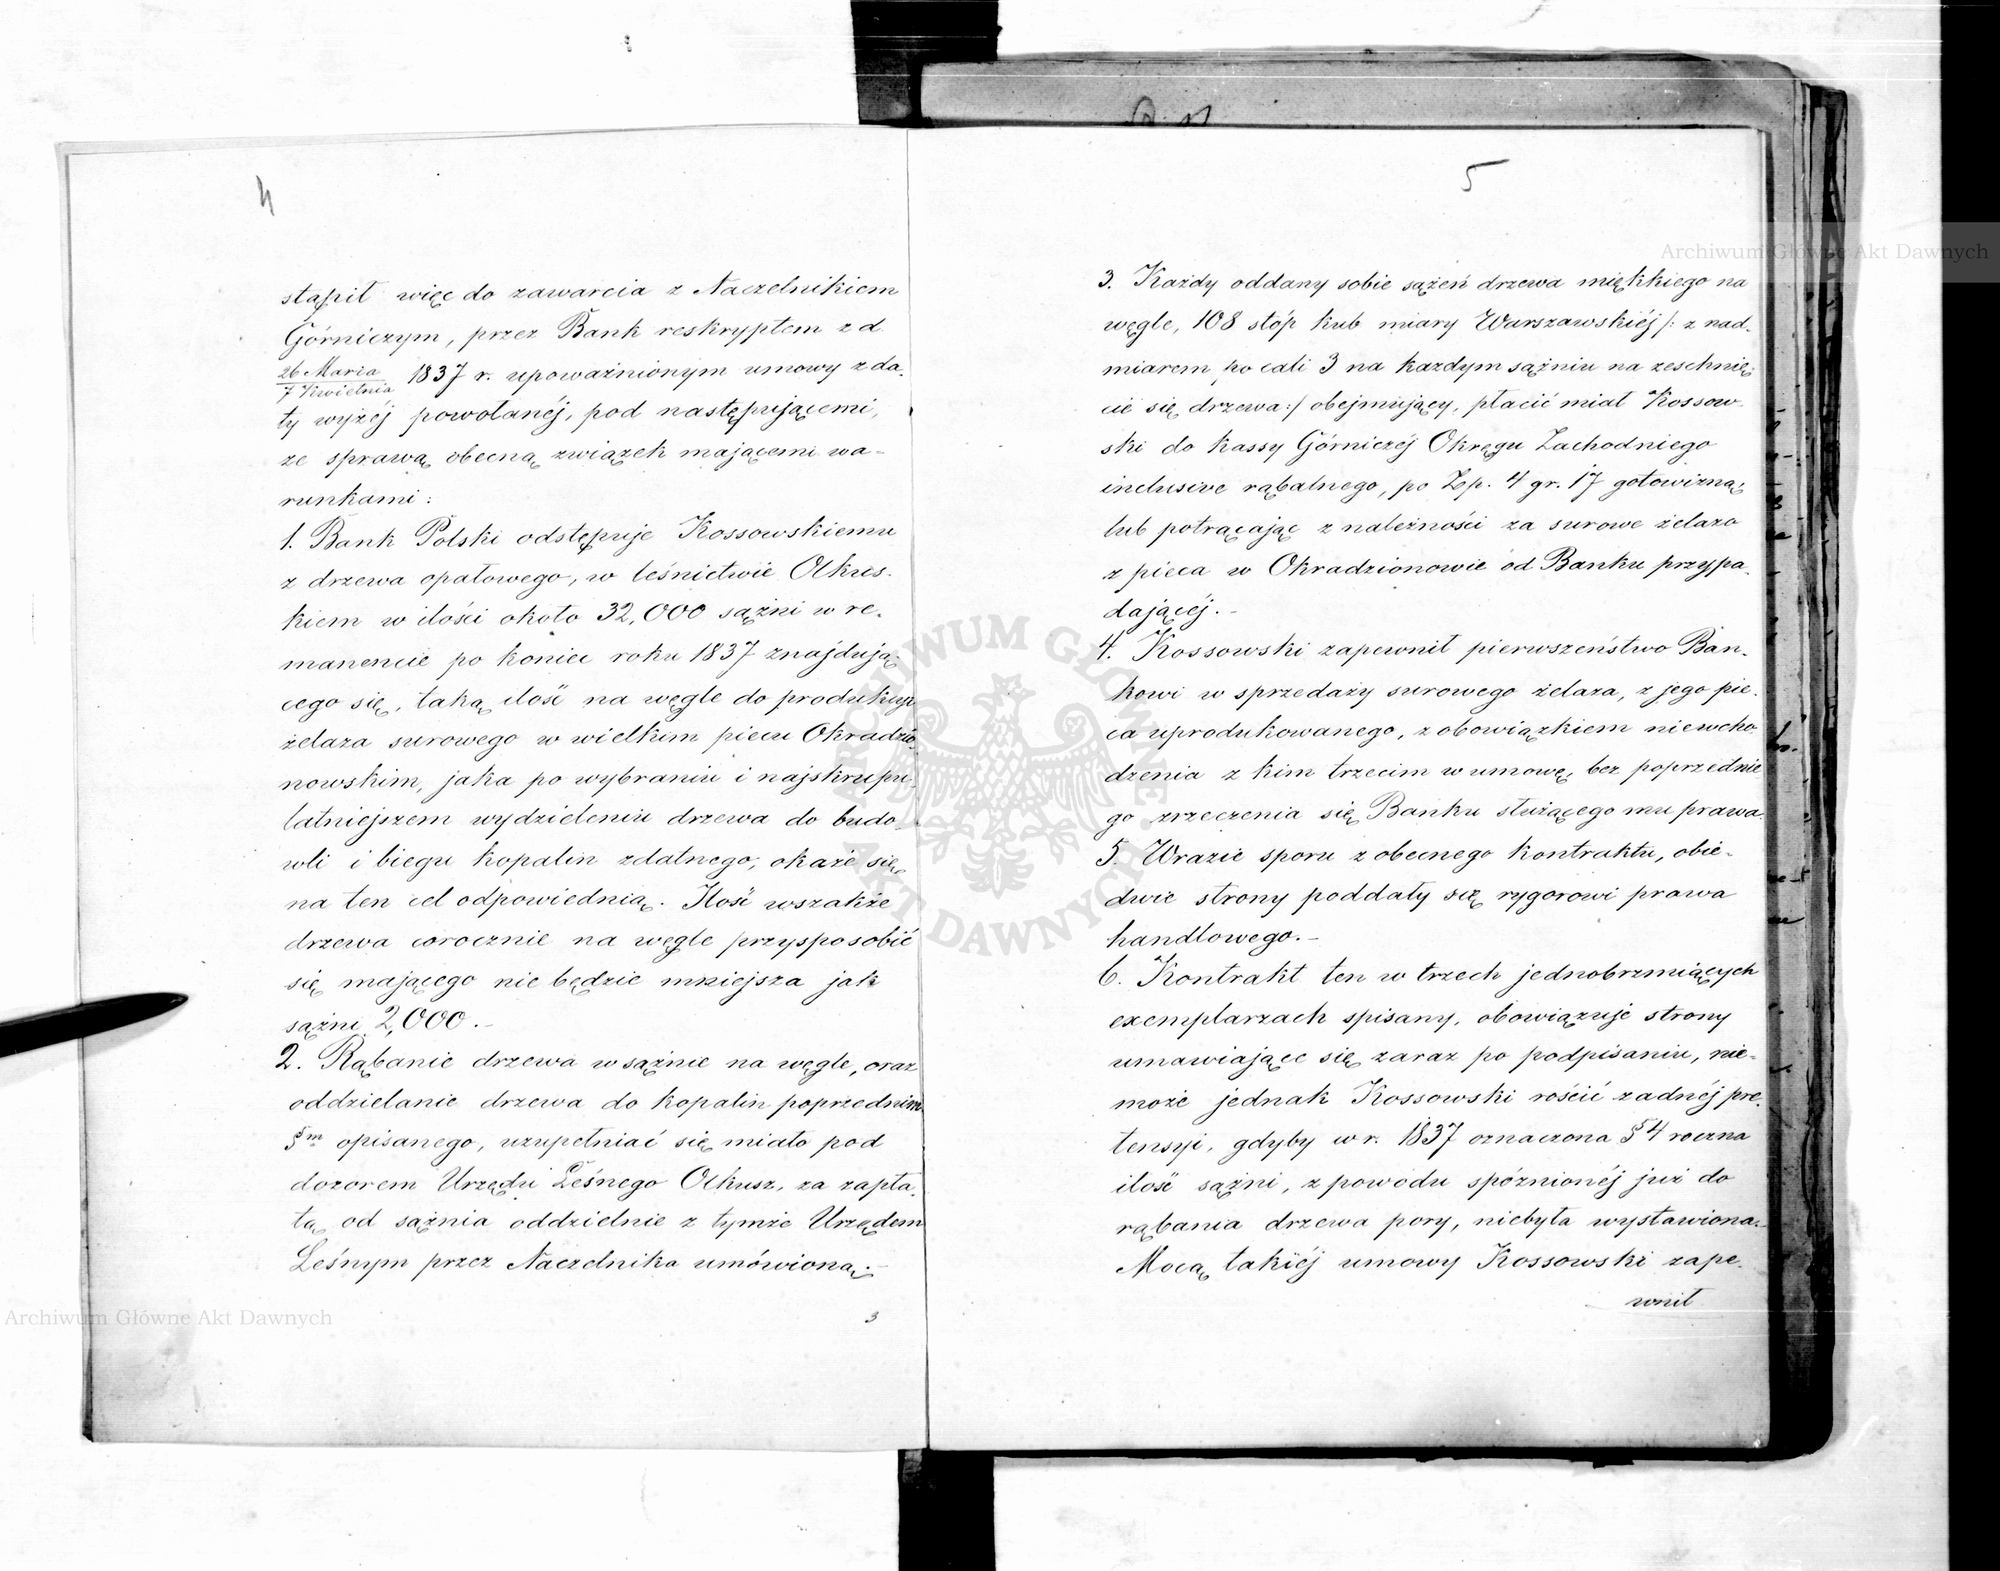 4
stąpił więc do zawarcia z Naczelnikiem
Górniczym, przez Bank reskryptem z d.
26 Marca / 7 Kwietnia 1837 r. upoważnionym umowy z da-
ty wyżéj powołanéj, pod następującemi,
ze sprawą obecną związek mającemi wa-
runkami:
1. Bank Polski odstępuje Kossowskiemu
z drzewa opałowego, w leśnictwie Olkus-
kiem w ilości około 32,000 sążni w re-
manencie po koniec roku 1837 znajdują-
cego się, taką ilość na węgle do produkcyi
żelaza surowego w wielkim piecu Okradzio-
nowskim, jaka po wybraniu i najskrupu-
latniejszem wydzieleniu drzewa do budo-
wli i biegu kopalin zdatnego, okaże się
na ten cel odpowiednią. Ilość wszakże
drzewa corocznie na węgle przysposobić
się mającego nie będzie mniejsza jak
sążni 2,000.-
2. Rąbanie drzewa w sążnie na węgle, oraz
oddzielanie drzewa do kopalin poprzednim
§m opisanego, uzupełniać się miało pod
dozorem Urzędu Leśnego Olkusz, za zapła-
tą od sążnia oddzielnie z tymże Urzędem
Leśnym przez Naczelnika umówioną.-
3
5
3. Każdy oddany sobie sążeń drzewa miękkiego na
węgle, 108 stóp kub miary Warszawskiéj /: z nad-
miarem po cali 3 na każdym sążniu na zeschnię-
cie się drzewa:/ obejmujący, płacić miał Kossow-
ski do kassy Górniczéj Okręgu Zachodniego
inclusive rąbalnego, po Złp. 4 gr. 17 gotowizną,
lub potrącając z należności za surowe żelazo
z pieca w Okradzionowie od Banku przypa-
dającéj.-
4. Kossowski zapewnił pierwszeństwo Ban-
kowi w sprzedaży surowego żelaza, z jego pie-
ca uprodukowanego, z obowiązkiem niewcho-
dzenia z kim trzecim w umowę, bez poprzednie
go zrzeczenia się Banku służącego mu prawa.
5. W razie sporu z obecnego kontraktu, obie-
dwie strony poddały się rygorowi prawa
handlowego.-
6. Kontrakt ten w trzech jednobrzmiących
exemplarzach spisany, obowiązuje strony
umawiające się zaraz po podpisaniu, nie-
może jednak Kossowski rościć żadnéj pre-
tensyi, gdyby w r. 1837 oznaczona § 4 roczna
ilość sążni, z powodu spóźnionéj już do
rąbania drzewa pory, niebyła wystawiona.-
Mocą takiéj umowy Kossowski zape-
wnił
Archiwum Główne Akt Dawnych
Archiwum Główne Akt Dawnych
ARCHIWUM GŁÓWNE AKT DAWNYCH